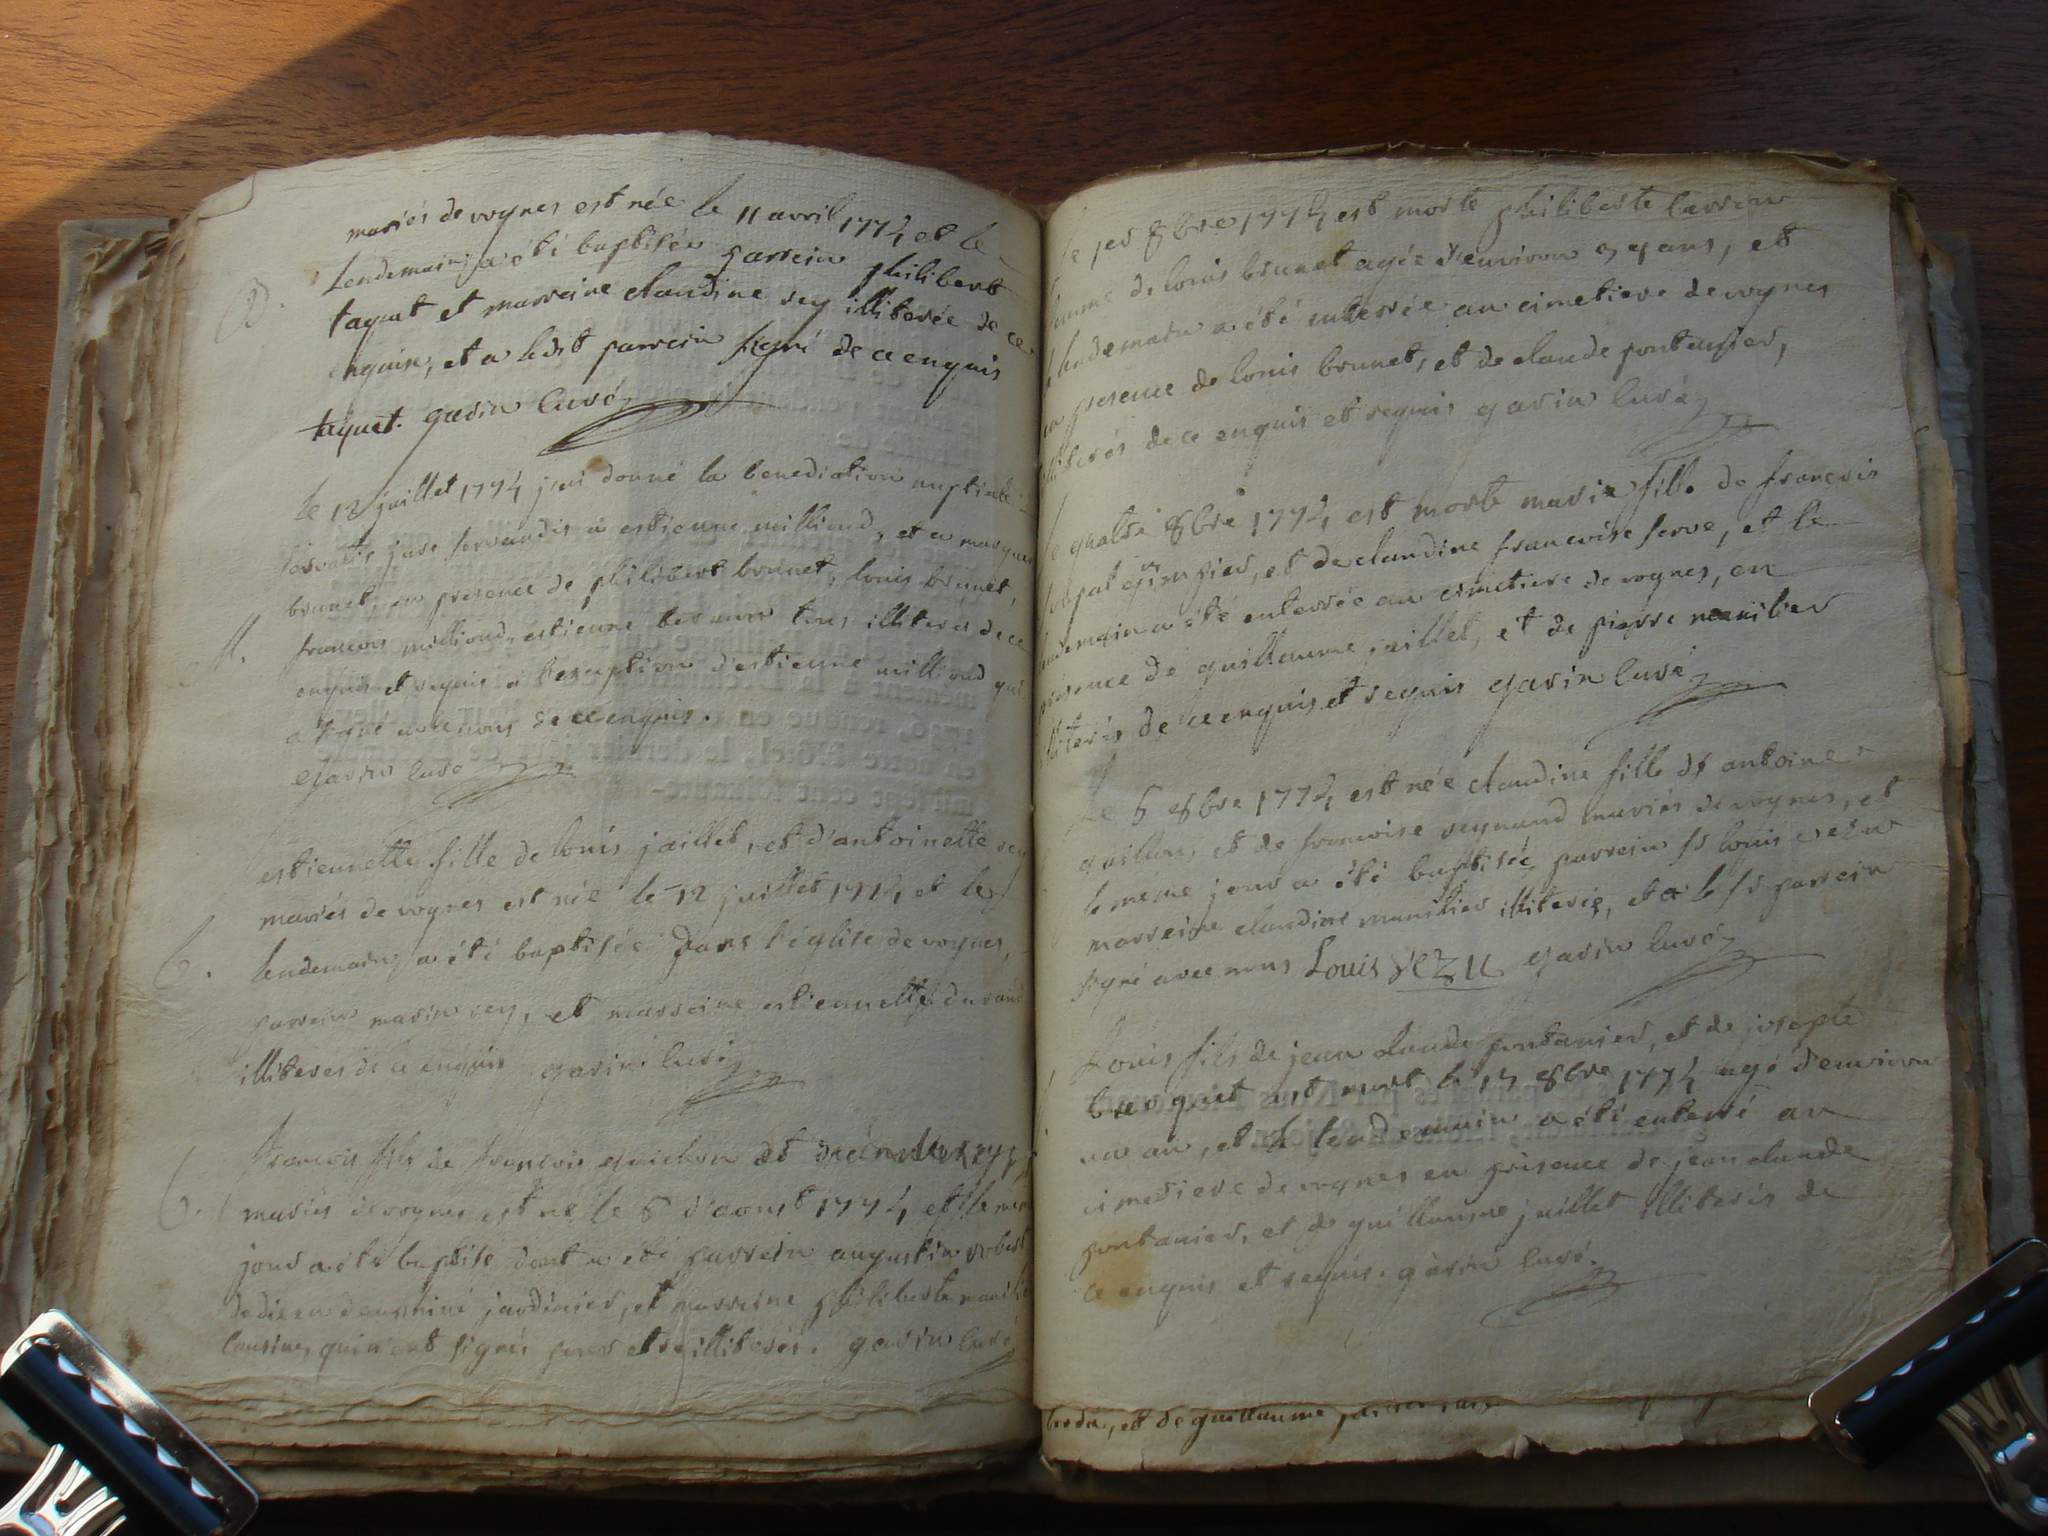 mariés de vognes est née le 11 avril 1774 et le
lendemain a été baptisée parrein philibert
taquet et marreine claudine rey illiterée de ce
enquise, et a ledit parrein signé de ce enquis
taquet. garin curé
le 12 juillet 1774 j'ai donné la benediction nuptiale
servatis jure servandis à estienne milliand, et a
brunet, en presence de philibert brunet, louis brunet,
M. francois milliand, estienne tous illiterés de ce
enquis et requis a l'exeption d'estienne milliand qui
a signé avec nous de ce enquis.
garin curé
estiennette fille de louis jaillet, et d'antoinette rey
mariés de vognes est née le 12 juillet 1774 et le
b. lendemain a été baptisée dans l'église de vognes,
parrein marin rey, et marreine estiennette durand
illiterés de ce enquis garin curé
francois fils de francois guichon et
b. mariés de vognes est né le 6 d'aoust 1774, et le meme
jour a été baptisé dont a été parrein augustin robert
jardinier, et marreine philiberte
cousine, qui n'ont signés pour etre illiterés. garin curé
le per 8bre 1774 est morte philiberte
femme de louis brunet agée d'environ ans, et
le lendemain a été enterrée au cimetiere de vognes
en presence de louis brunet, et de claude pontanier,
illiterés de ce enquis et requis garin curé
le quatre 8bre 1774 est morte marie fille de francois
et de claudine francoise serve, et le
lendemain a été enterrée au cimetiere de vognes, en
présence de guillaume jaillet, et de pierre manilier
illiterés de ce enquis et requis garin curé
Le 6 8bre 1774 est née claudine fille de antoine
guillon, et de francoise reynaud mariés de vognes, et
le même jour a été baptisée, parrein sr louis vezu
marreine claudine manilier illiterée, et a le sr parrein
signé avec nous Louis vezu garin curé
Louis fils de jean claude pontanier, et de josepte
est mort le 13 8bre 1774 agé d'environ
un an, et le lendemain a été enterré au
cimetiere de vognes en présence de jean claude
pontanier, et de guillaume jaillet illiterés de
ce enquis et requis. garin curé.
et de guillaume